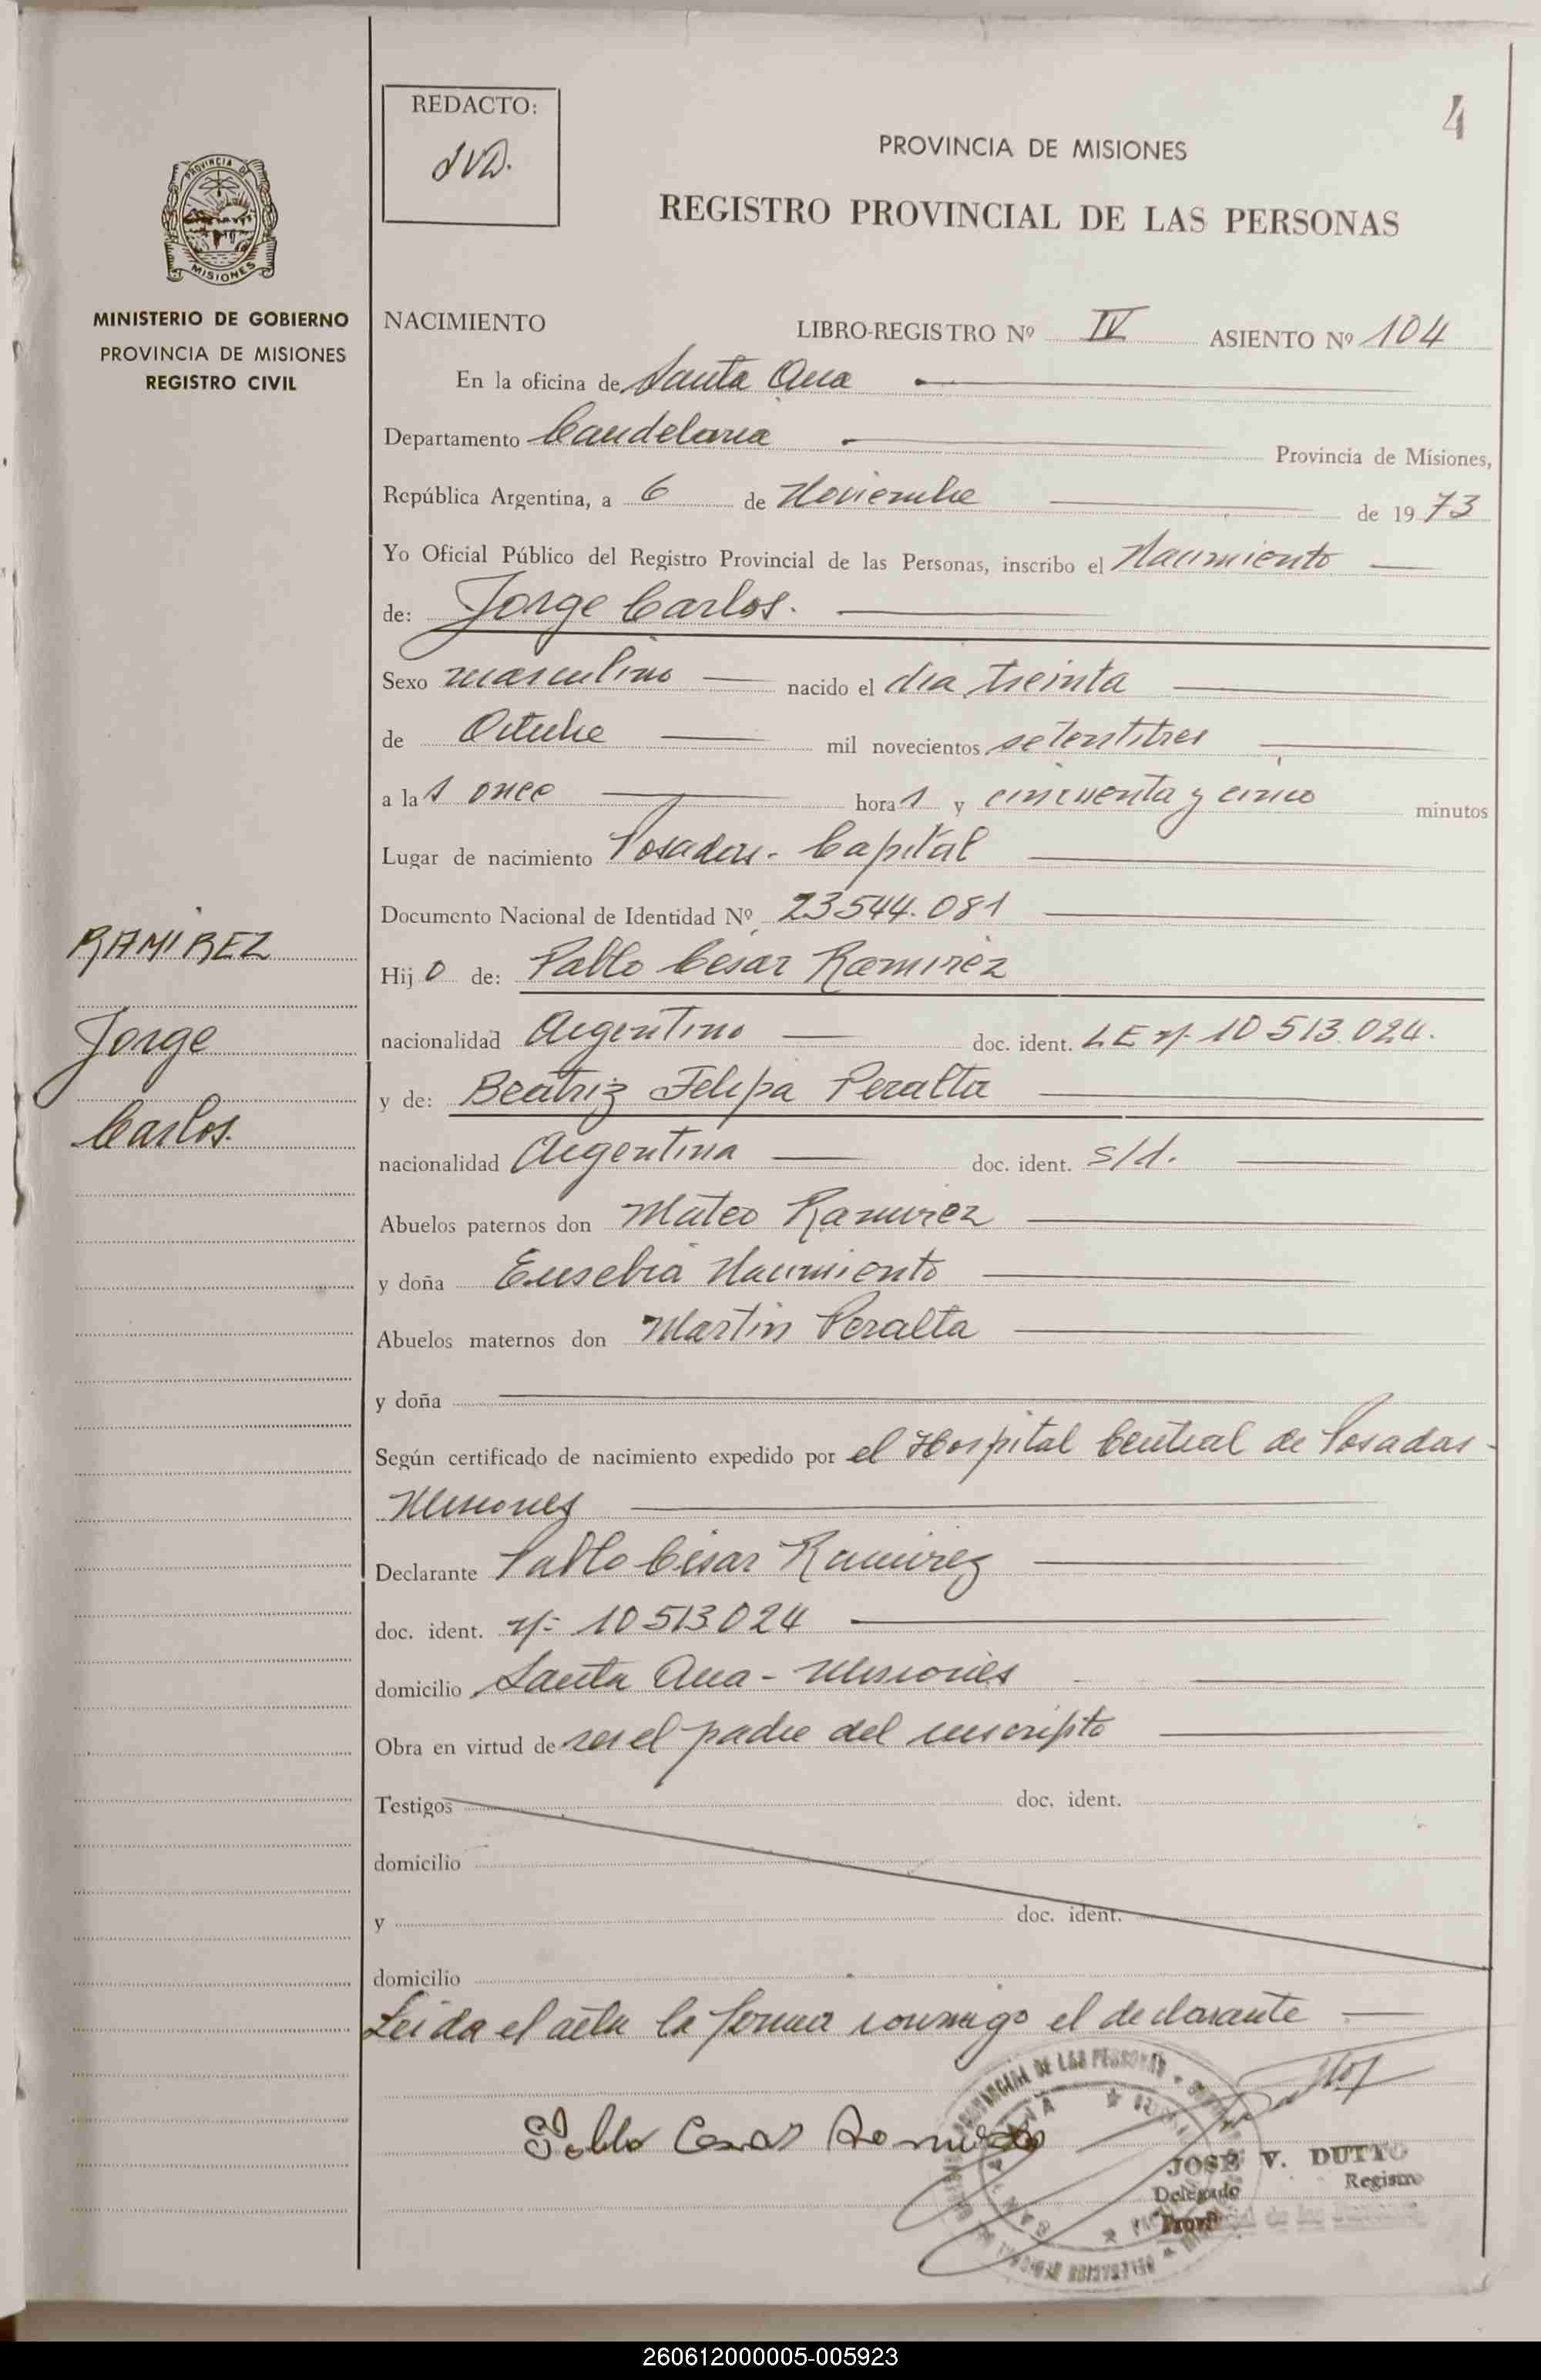 4
REDACTO:
JVD.
PROVINCIA DE MISIONES
REGISTRO PROVINCIAL DE LAS PERSONAS
PROVINCIA DE
MISIONES
MINISTERIO DE GOBIERNO
PROVINCIA DE MISIONES
REGISTRO CIVIL
NACIMIENTO LIBRO-REGISTRO Nº IV ASIENTO Nº 104
En la oficina de Santa Ana
Departamento Candelaria Provincia de Misiones,
República Argentina, a 6 de Noviembre de 1973
Yo Oficial Público del Registro Provincial de las Personas, inscribo el Nacimiento
de: Jorge Carlos.
Sexo masculino nacido el día treinta
de Octubre mil novecientos setentitres
a las once horas y cincuenta y cinco minutos
Lugar de nacimiento Posadas - Capital
Documento Nacional de Identidad Nº 23544.081
RAMIREZ
Jorge
Carlos.
Hijo de: Pablo César Ramirez
nacionalidad Argentino doc. ident. LE nº 10513.024.
y de: Beatriz Felipa Peralta
nacionalidad Argentina doc. ident. s/d.
Abuelos paternos don Mateo Ramirez
y doña Eusebia Nacimiento
Abuelos maternos don Martin Peralta
y doña
Según certificado de nacimiento expedido por el Hospital Central de Posadas -
Misiones
Declarante Pablo César Ramirez
doc. ident. nº 10513024
domicilio Santa Ana - Misiones
Obra en virtud de ser el padre del inscripto
Testigos doc. ident.
domicilio
y doc. ident.
domicilio
Leida el acta la firma conmigo el declarante
Pablo Cesar Ramirez
JOSE V. DUTTO
Delegado Registro
Prov
260612000005-005923